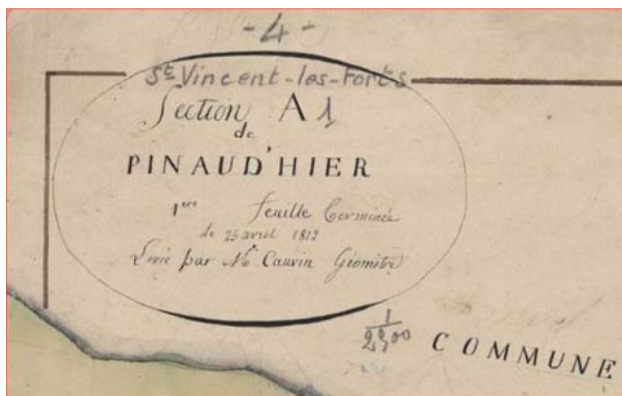 - 4 -
St Vincent-les-Forts
Section A 1
de
PINAUD'HIER
1ere feuille Terminée
de 25 avril 1812
Levée par Mr Cauvin Géomètre
COMMUNE